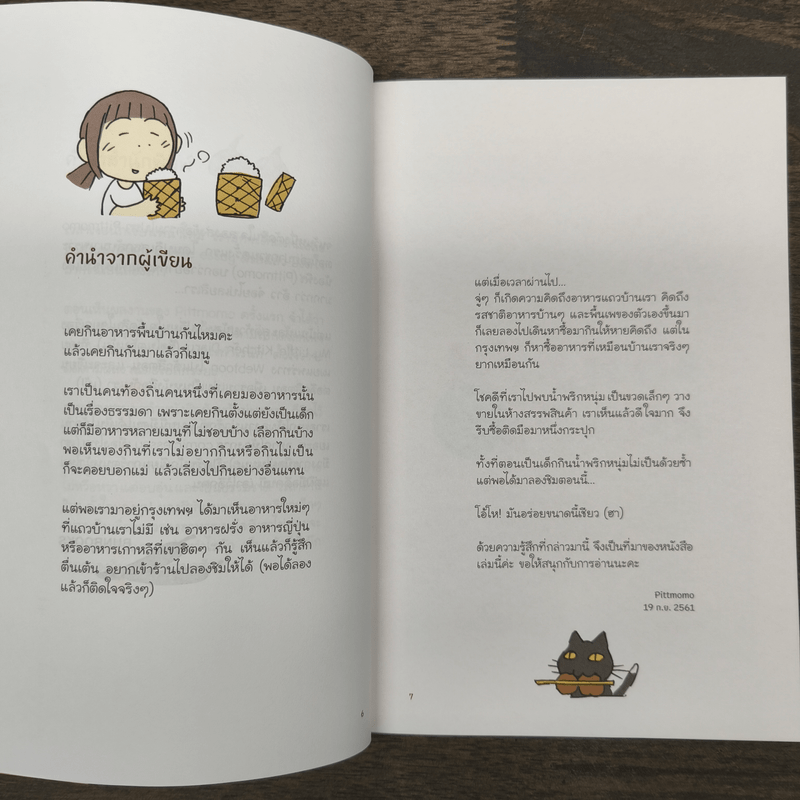 คำนำจากผู้เขียน
เคยกินอาหารพื้นบ้านกันไหมคะ
แล้วเคยกินกันมาแล้วกี่เมนู
เราเป็นคนท้องถิ่นคนหนึ่งที่เคยมองอาหารนั้น
เป็นเรื่องธรรมดา เพราะเคยกินตั้งแต่ยังเป็นเด็ก
แต่ก็มีอาหารหลายเมนูที่ไม่ชอบบ้าง เลือกกินบ้าง
พอเห็นของกินที่เราไม่อยากกินหรือกินไม่เป็น
ก็จะคอยบอกแม่ แล้วเลี่ยงไปกินอย่างอื่นแทน
แต่พอเรามาอยู่กรุงเทพฯ ได้มาเห็นอาหารใหม่ๆ
ที่แถวบ้านเราไม่มี เช่น อาหารฝรั่ง อาหารญี่ปุ่น
หรืออาหารเกาหลีที่เขาฮิตๆ กัน เห็นแล้วก็รู้สึก
ตื่นเต้น อยากเข้าร้านไปลองชิมให้ได้ (พอได้ลอง
แล้วก็ติดใจจริงๆ)
6
แต่เมื่อเวลาผ่านไป...
จู่ๆ ก็เกิดความคิดถึงอาหารแถวบ้านเรา คิดถึง
รสชาติอาหารบ้านๆ และพื้นเพของตัวเองขึ้นมา
ก็เลยลองไปเดินหาซื้อมากินให้หายคิดถึง แต่ใน
กรุงเทพฯ ก็หาซื้ออาหารที่เหมือนบ้านเราจริงๆ
ยากเหมือนกัน
โชคดีที่เราไปพบน้ำพริกหนุ่ม เป็นขวดเล็กๆ วาง
ขายในห้างสรรพสินค้า เราเห็นแล้วดีใจมาก จึง
รีบซื้อติดมือมาหนึ่งกระปุก
ทั้งที่ตอนเป็นเด็กกินน้ำพริกหนุ่มไม่เป็นด้วยซ้ำ
แต่พอได้มาลองชิมตอนนี้...
โอ้โห! มันอร่อยขนาดนี้เชียว (ฮา)
ด้วยความรู้สึกที่กล่าวมานี้ จึงเป็นที่มาของหนังสือ
เล่มนี้ค่ะ ขอให้สนุกกับการอ่านนะคะ
Pittmomo
19 ก.ย. 2561
7